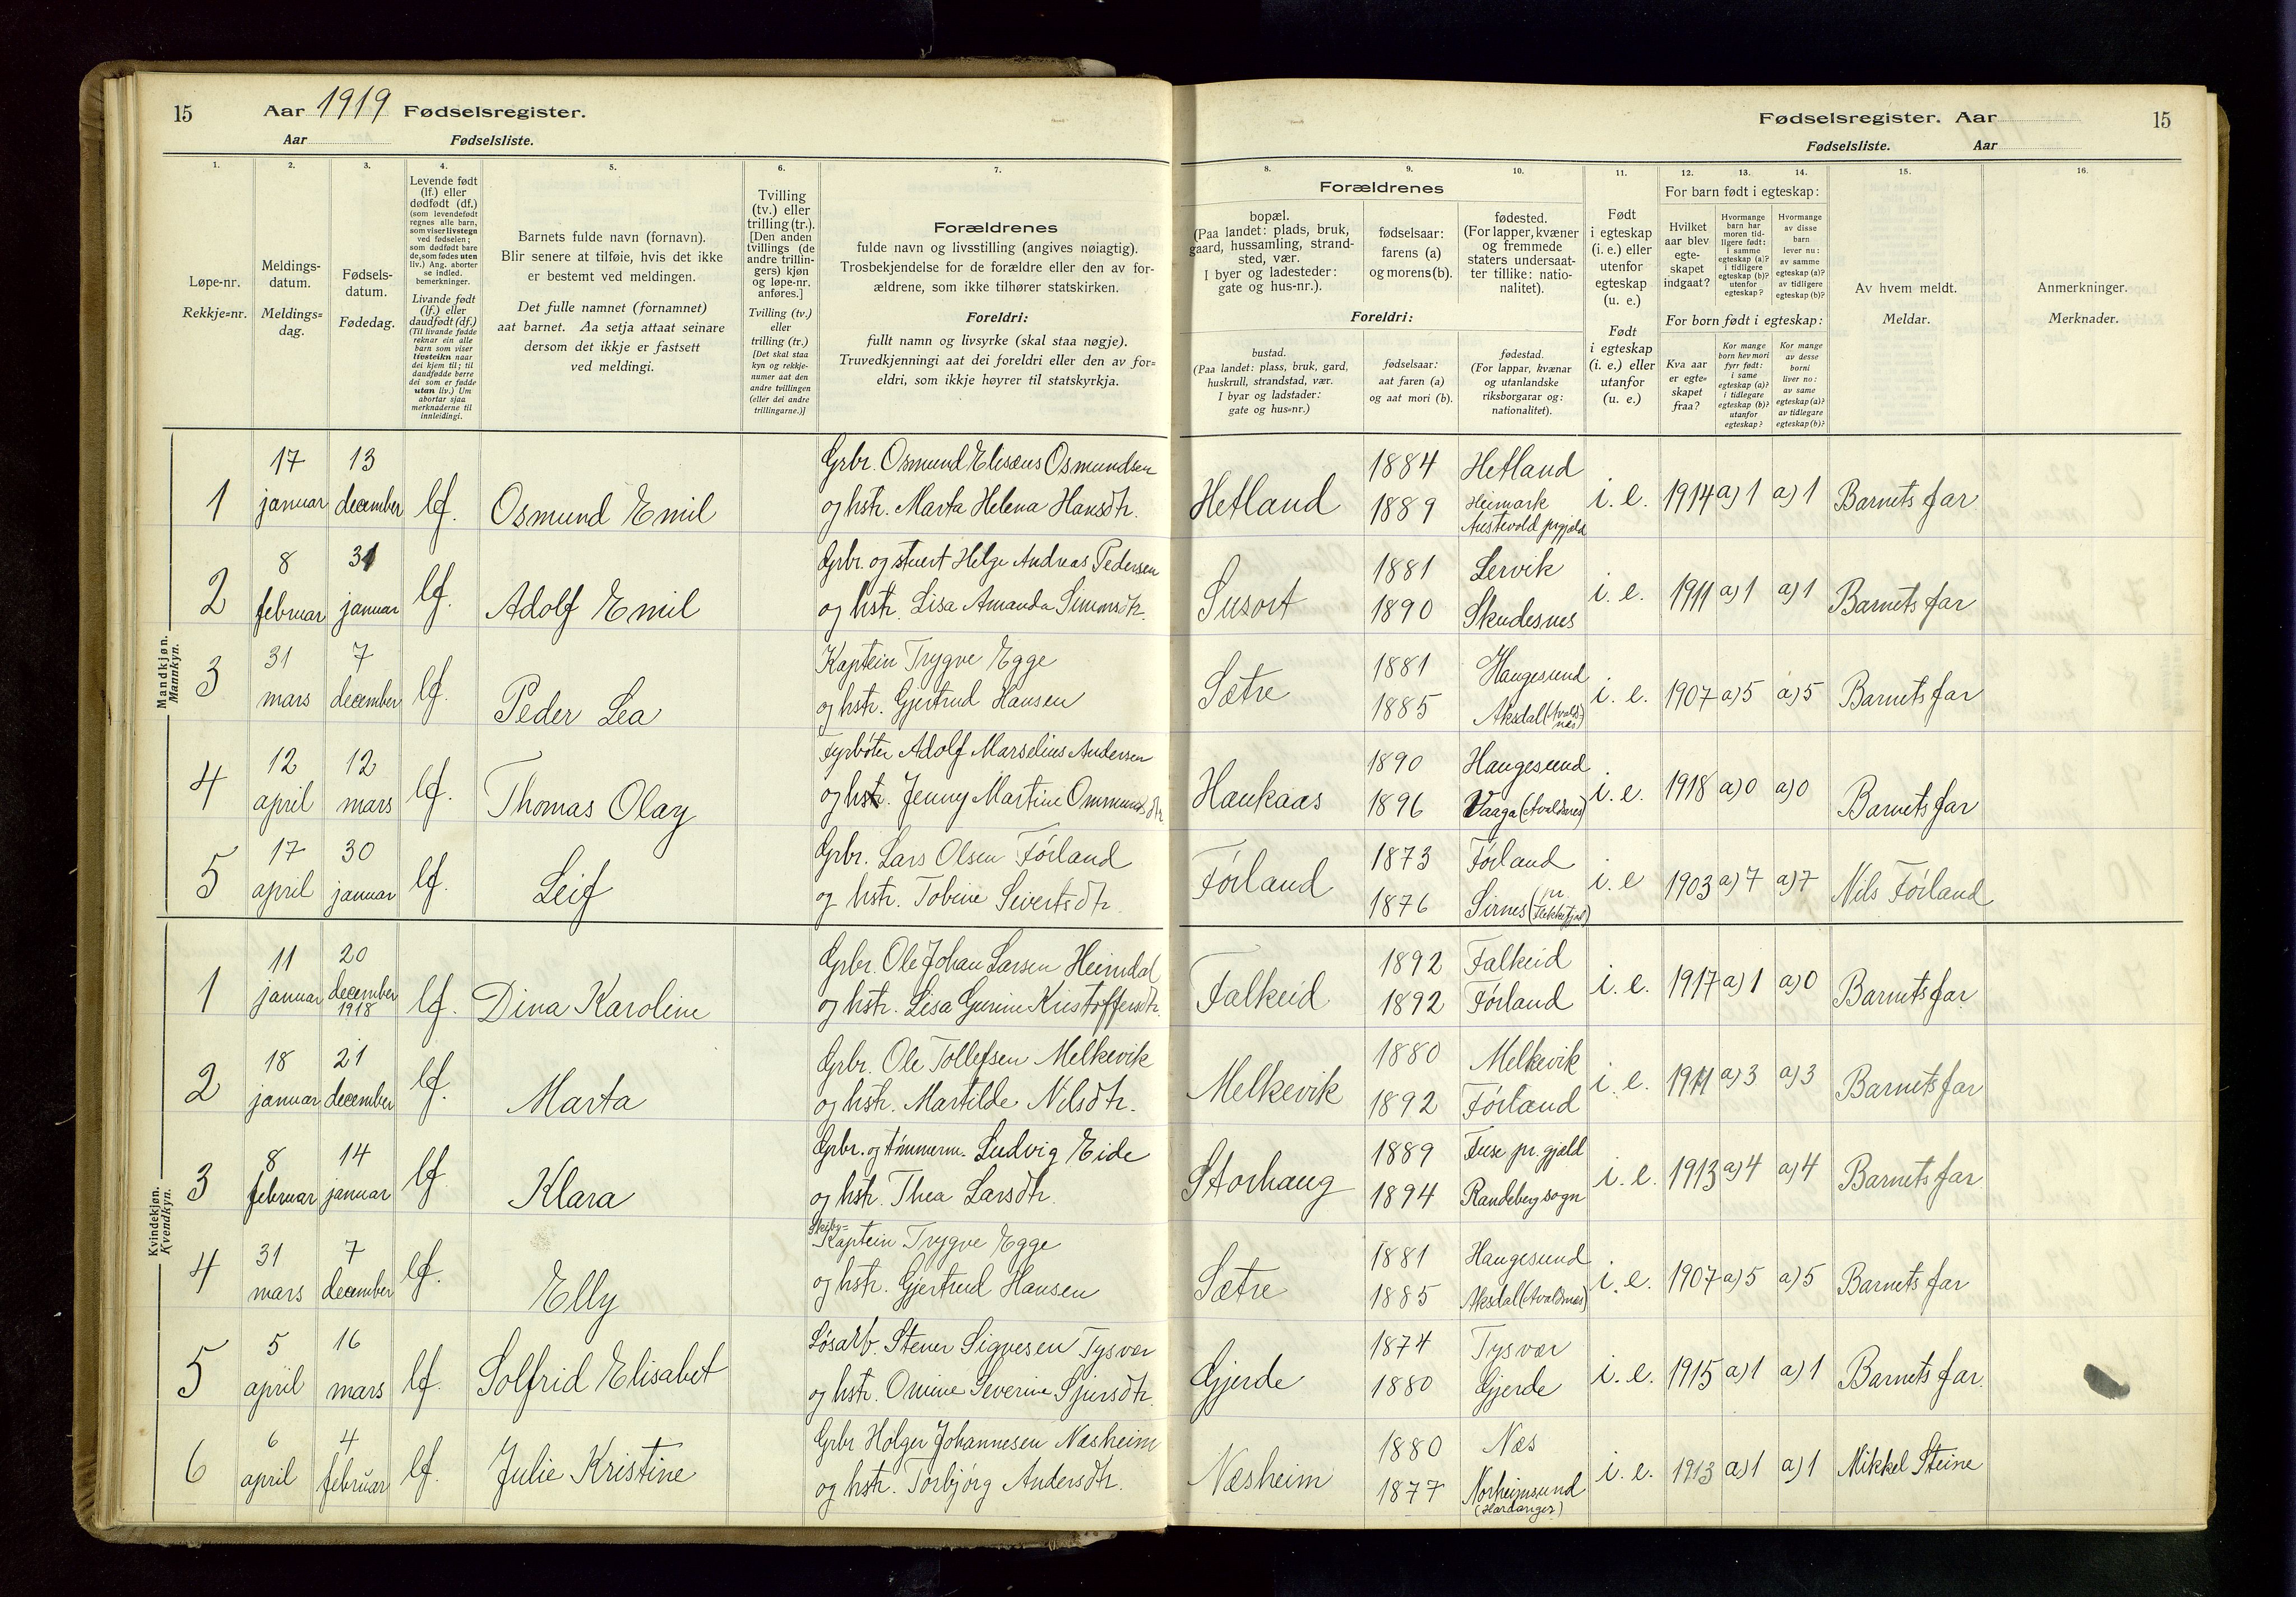 15 Aar 1919 Fødselsregister.
Aar Fødselsliste.
Fødselsregister. Aar 15
Fødselsliste. Aar
1. 2. 3. 4. 5. 6. 7. 8. 9. 10. 11. 12. 13. 14. 15. 16.
Løpe-nr.
Rekkje=nr.
Meldings-
datum.
Meldings=
dag.
Fødsels-
datum.
Fødedag.
Levende født
(lf.) eller
dødfødt (df.)
(som levendefødt
regnes alle barn,
som viser livstegn
ved fødselen;
som dødfødt bare
de, som fødes uten
liv.) Ang. aborter
se indled.
bemerkninger.
Livande født
(lf.) eller
daudfødt (df.)
(Til livande fødde
reknar ein alle
barn som viser
livsteikn naar
dei kjem til; til
daudfødde berre
dei som er fødde
utan liv.) Um
abortar sjaa
merknaderne til
innleidingi.
Barnets fulde navn (fornavn).
Blir senere at tilføie, hvis det ikke
er bestemt ved meldingen.
Det fulle namnet (fornamnet)
aat barnet. Aa setja attaat seinare
dersom det ikkje er fastsett
ved meldingi.
Tvilling
(tv.) eller
trilling (tr.).
[Den anden
tvillings (de
andre trillin-
gers) kjøn
og løpe-nr.
anføres.]
Tvilling (tv.)
eller
trilling (tr.)
[Det skal staa
kyn og rekkje-
numer aat den
andre tvillingen
(eller dei andre
trillingarne.)]
Forældrenes
fulde navn og livsstilling (angives nøiagtig).
Trosbekjendelse for de forældre eller den av for-
ældrene, som ikke tilhører statskirken.
Foreldri:
fullt namn og livsyrke (skal staa nøgje).
Truvedkjenningi aat dei foreldri eller den av for=
eldri, som ikkje høyrer til statskyrkja.
Forældrenes
bopæl.
(Paa landet: plads, bruk,
gaard, hussamling, strand-
sted, vær.
I byer og ladesteder:
gate og hus-nr.).
fødselsaar:
farens (a)
og morens (b).
fødested.
(For lapper, kvæner
og fremmede
staters undersaat-
ter tillike: natio-
nalitet).
Foreldri:
bustad.
(Paa landet: plass, bruk, gard,
huskrull, strandstad, vær.
I byar og ladstader:
gate og hus=nr.)
fødselsaar:
aat faren (a)
og aat mori (b).
fødestad.
(For lappar, kvænar
og utanlandske
riksborgarar og:
nationalitet).
Født
i egteskap
(i. e.) eller
utenfor
egteskap
(u. e.)
Født
i egteskap
(i. e.) eller
utanfor
(u. e.)
For barn født i egteskap:
Hvilket
aar blev
egte-
skapet
indgaat?
Hvormange
barn har
moren tid-
ligere født:
i samme
egteskap (a)?
i tidligere
egteskap (b)?
utenfor
egteskap?
Hvormange
av disse
barn
lever nu:
av samme
egteskap (a)?
av tidligere
egteskap (b)?
For born født i egteskap:
Kva aar
er egte=
skapet
fraa?
Kor mange
born hev mori
fyrr født:
i same
egteskap (a)?
i tidlegare
egteskap (b)?
utanfor
egteskap?
Kor mange
av desse
borni
liver no:
av same
egteskap (a)?
av tidlegare
egteskap (b)?
Av hvem meldt.
Meldar.
Anmerkninger.
Merknader.
Mandkjøn.
Mannkyn.
1 17 januar 13 december lf. Osmund Emil
Grbr. Osmund Elisæus Osmundsen
og hstr. Marta Helena Hansdtr.
Hetland 1884 Hetland
1889 Heimark
Austevold prgjæld
i. e. 1914 a) 1 a) 1 Barnets far
2 8 februar 31 januar lf. Adolf Emil
Grbr. og stuert Helge Andreas Pedersen
og hstr. Lisa Amanda Simonsdtr.
Susort 1881 Lervik
1890 Skudesnes
i. e. 1911 a) 1 a) 1 Barnets far
3 31 mars 7 december lf. Peder Lea
Kaptein Trygve Egge
og hstr. Gjertrud Hansen
Sætre 1881 Haugesund
1885 Aksdal (Avaldsnes)
i. e. 1907 a) 5 a) 5 Barnets far
4 12 april 12 mars lf. Thomas Olay
Fyrbøter Adolf Marselius Andersen
og hstr. Jenny Martine Ommundsdtr
Haukaas 1890 Haugesund
1896 Vaaga (Avaldsnes)
i. e. 1918 a) 0 a) 0 Barnets far
5 17 april 30 januar lf. Leif
Grbr. Lars Olsen Førland
og hstr. Tobine Sivertsdtr
Førland 1873 Førland
1876 Sirnes (pr. Flekkefjord)
i. e 1903 a) 7 a) 7 Nils Førland
Kvindekjøn.
Kvendkyn.
1 11 januar 20 december 1918 lf. Dina Karoline
Grbr. Ole Johan Larsen Heimdal
og hstr. Lisa Gurine Kristoffersdtr.
Falkeid 1892 Falkeid
1892 Førland
i. e. 1917 a) 1 a) 0 Barnets far
2 18 januar 21 december lf. Marta
Grbr. Ole Tollefsen Melkevik
og hstr. Martilde Nilsdtr.
Melkevik 1880 Melkevik
1892 Førland
i. e. 1911 a) 3 a) 3 Barnets far
3 8 februar 14 januar lf Klara
Grbr. og tømmerm. Ludvig Eide
og hstr. Thea Larsdtr.
Storhaug 1889 Fuse pr. gjæld
1894 Randeberg sogn
i. e. 1913 a) 4 a) 4 Barnets far
4 31 mars 7 december lf. Elly
Skibs=
Kaptein Trygve Egge
og hstr. Gjertrud Hansen
Sætre 1881 Haugesund
1885 Aksdal (Avaldsnes)
i. e. 1907 a) 5 a) 5 Barnets far
5 5 april 16 mars lf. Solfrid Elisabet
Løsarb. Stener Sigvesen Tysvær
og hstr. Omine Severine Sjursdtr.
Gjerde 1874 Tysvær
1880 Gjerde
i. e. 1915 a) 1 a) 1 Barnets far.
6 6 april 4 februar lf. Julie Kristine
Grbr Holger Johannesen Næsheim
og hstr. Torbjørg Andersdtr.
Næsheim 1880 Næs
1877 Norheimsund
(Hardanger)
i. e. 1913 a) 1 a) 1 Mikkel Steine